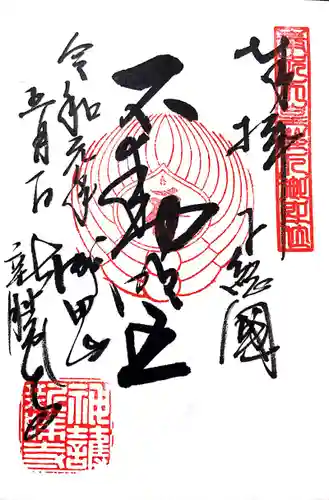 奉拝
下総國
不動明王
令和元年
五月一日
成田山
新勝寺
神護新勝寺